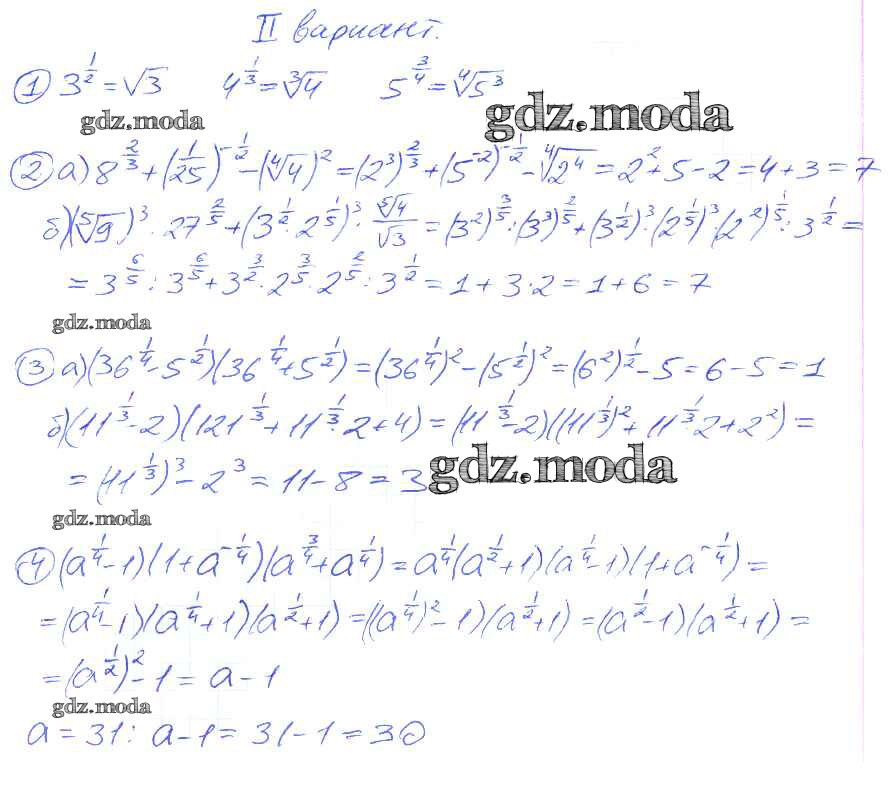 II вариант.
① 3^(1/2) = √3   4^(1/3) = ∛4   5^(3/4) = ∜5³
gdz.moda
gdz.moda
② а) 8^(2/3) + (1/25)^(-1/2) - (∜4)² = (2³)^(2/3) + (5^(-2))^(-1/2) - ∜2⁴ = 2² + 5 - 2 = 4 + 3 = 7
б) (⁵√9)³ : 27^(2/5) + (3^(1/2) · 2^(1/5))³ · ⁵√4/√3 = (3²)^(3/5) : (3³)^(2/5) + (3^(1/2))³ · (2^(1/5))³ · (2²)^(1/5) : 3^(1/2) =
= 3^(6/5) : 3^(6/5) + 3^(3/2) · 2^(3/5) · 2^(2/5) : 3^(1/2) = 1 + 3 · 2 = 1 + 6 = 7
gdz.moda
③ а) (36^(1/4) - 5^(1/2))(36^(1/4) + 5^(1/2)) = (36^(1/4))² - (5^(1/2))² = (6²)^(1/2) - 5 = 6 - 5 = 1
б) (11^(1/3) - 2)(121^(1/3) + 11^(1/3) · 2 + 4) = (11^(1/3) - 2)((11^(1/3))² + 11^(1/3) · 2 + 2²) =
= (11^(1/3))³ - 2³ = 11 - 8 = 3
gdz.moda
gdz.moda
④ (a^(1/4) - 1)(1 + a^(-1/4))(a^(3/4) + a^(1/4)) = a^(1/4)(a^(1/2) + 1)(a^(1/4) - 1)(1 + a^(-1/4)) =
= (a^(1/4) - 1)(a^(1/4) + 1)(a^(1/2) + 1) = ((a^(1/4))² - 1)(a^(1/2) + 1) = (a^(1/2) - 1)(a^(1/2) + 1) =
= (a^(1/2))² - 1 = a - 1
gdz.moda
a = 31: a - 1 = 31 - 1 = 30